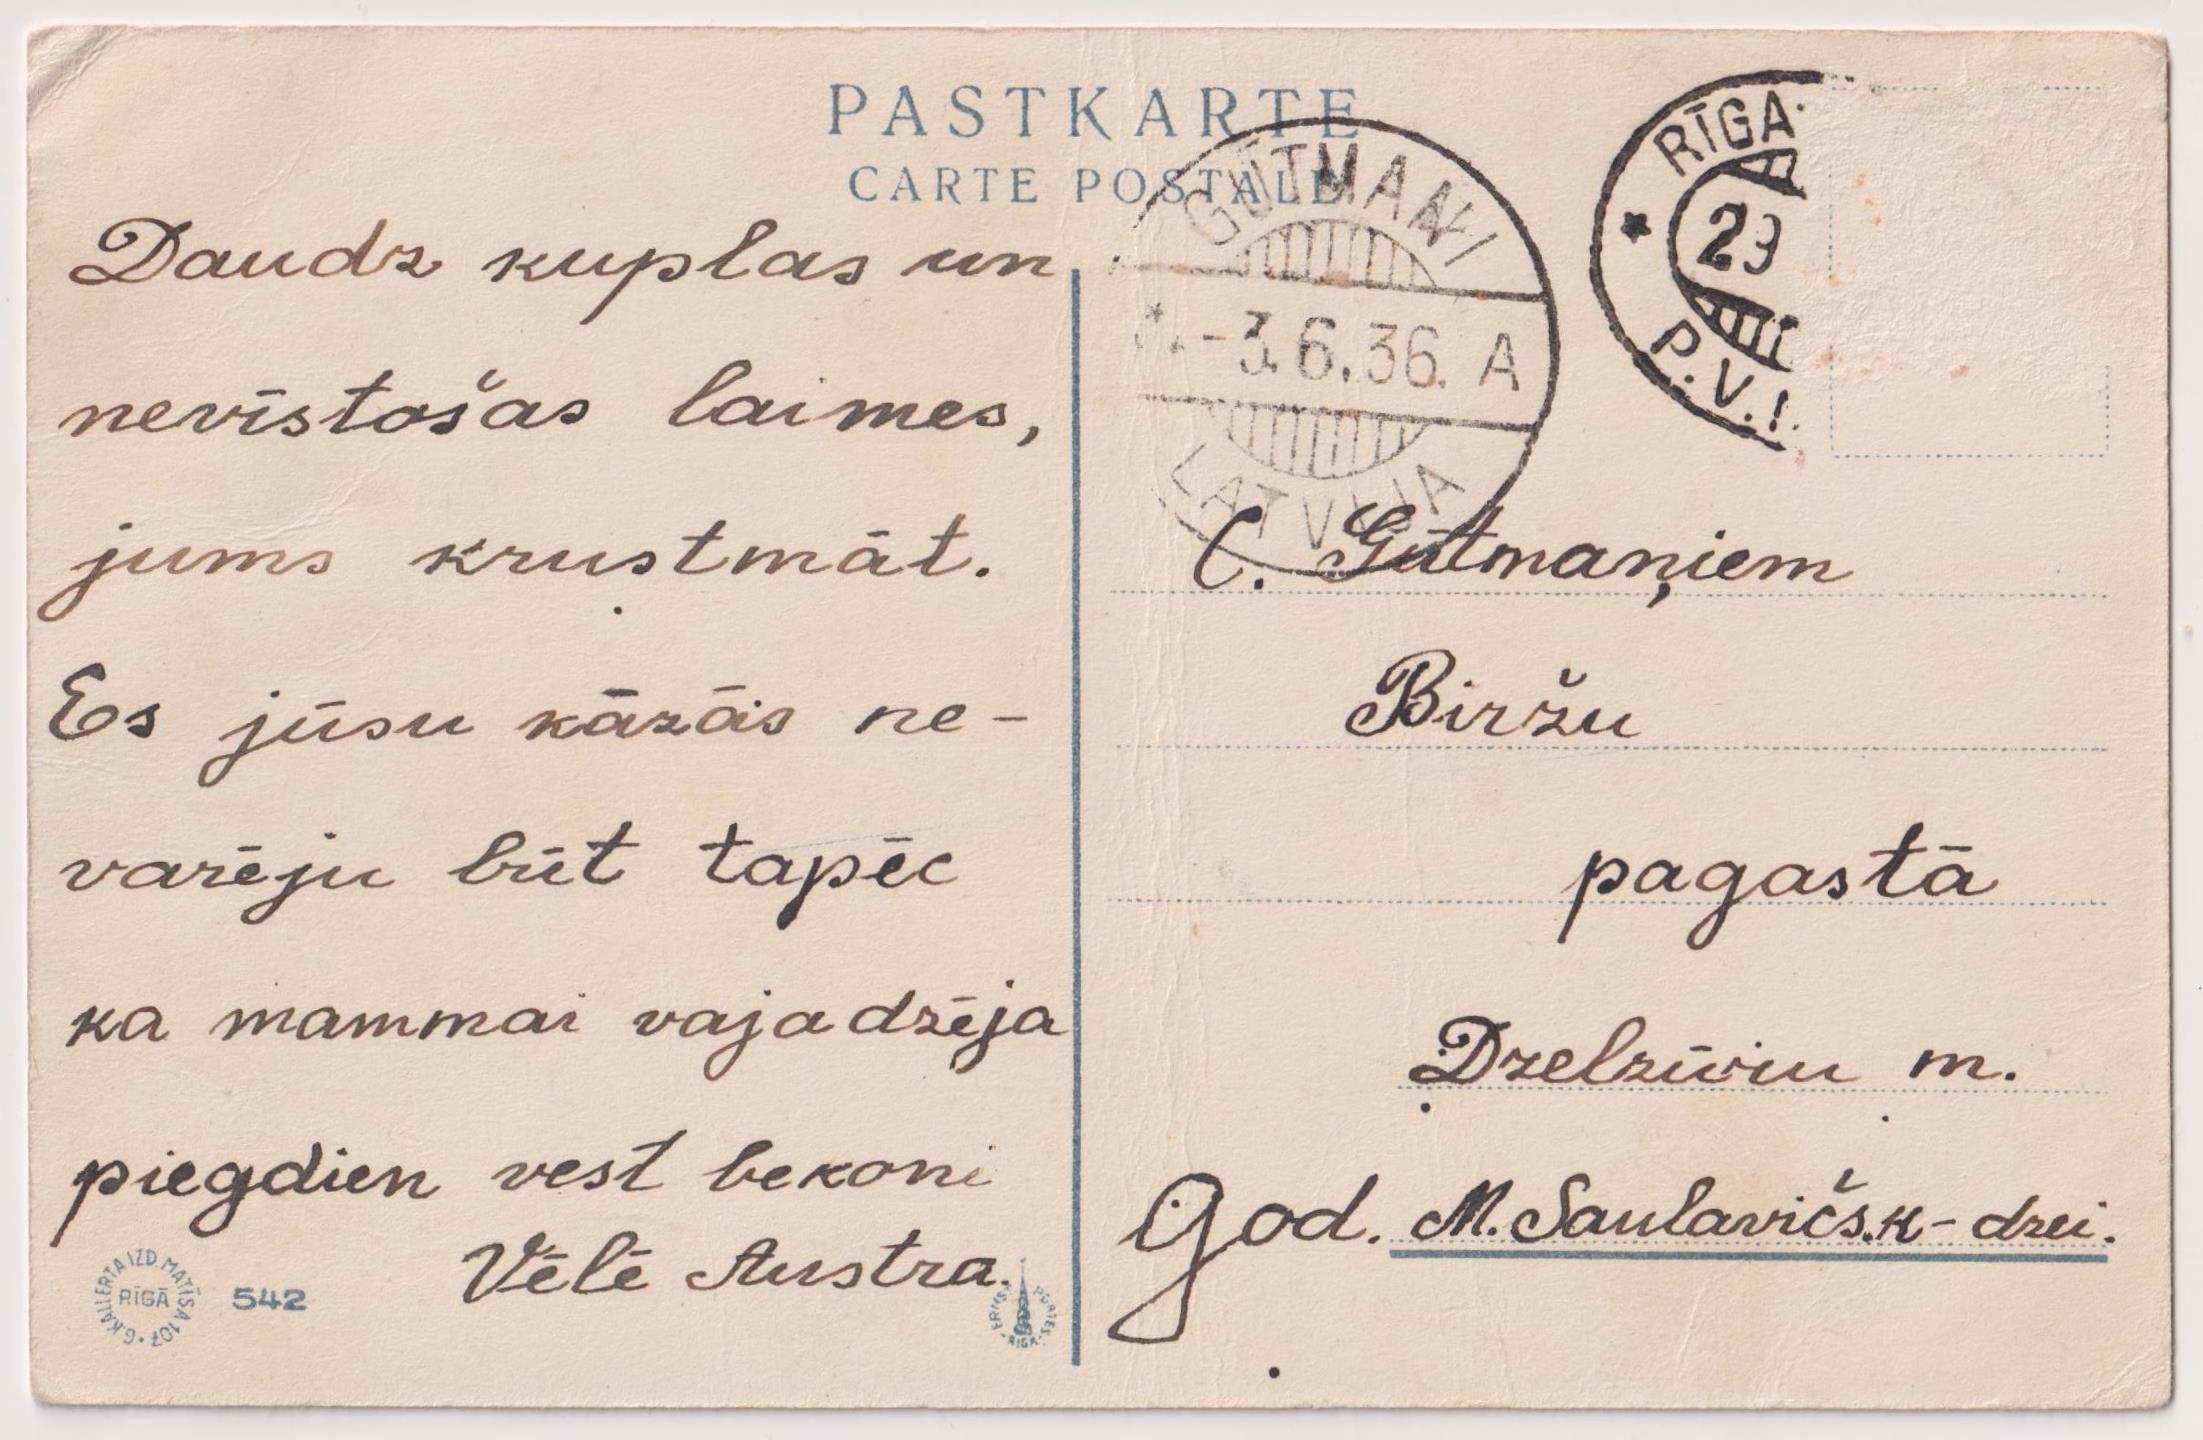 PASTKARTE
CARTE POSTALE
Daudz kuplas un
nevīstošas laimes,
jums krustmāt.
Es jūsu kāzās ne-
varēju būt tapēc
ka mammai vajadzēja
piegdien vest bekoni
Vēlē Austra.
G. KALLERTA IZD. MATĪSA 107
RĪGĀ
542
RĪGA
GŪTMAŅI
-3.6.36. A
LATVIJA
RĪGA
29
P.V.
C. Gūtmaņiem
Biržu
pagastā
Dzelzīviu m.
God. M. Saulavičs.k-dzei.